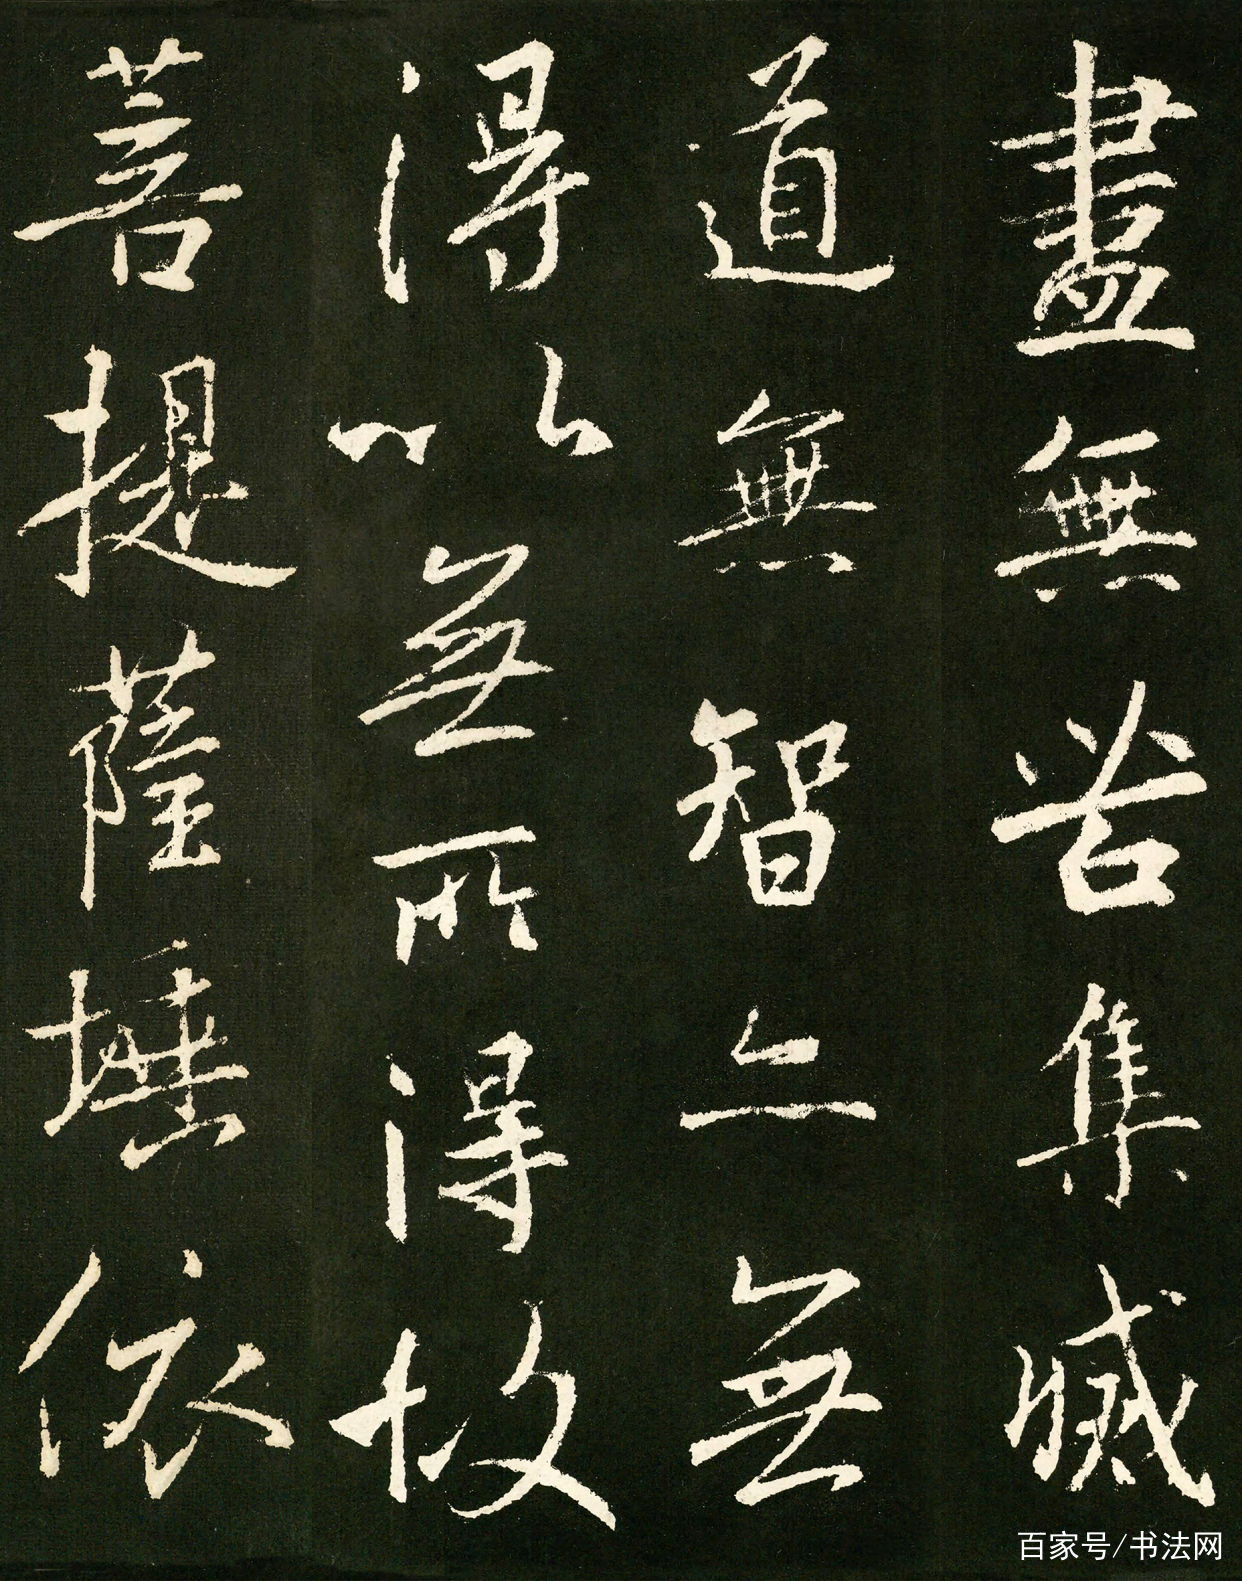 盡無苦集滅
道無無智亦無
得以無所得故
菩提薩埵依
百家号/书法网